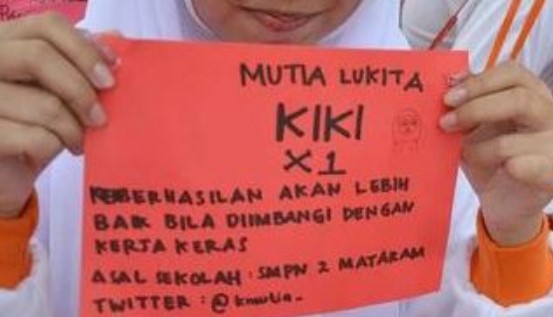 MUTIA LUKITA
KIKI
X1
KEBERHASILAN AKAN LEBIH
BAIK BILA DIIMBANGI DENGAN
KERJA KERAS
ASAL SEKOLAH : SMPN 2 MATARAM
TWITTER : @kmutia_